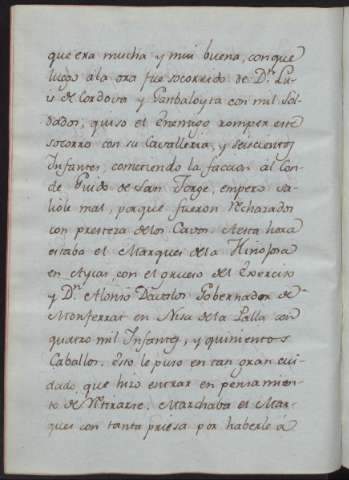 que era mucha y mui buena, conque
luego a la ora fue socorrido de D.n Lu-
is de Cordova y Ganbaloyta con mil Sol-
dados, quiso el Enemigo romper este
socorro con su Cavalleria, y seiscientos
Infantes, cometiendo la faccion al Con-
de Guido de San Jorge, empero sa-
liole mal, porque fueron rechazados
con presteza de los Cavos. A esta hora
estabo el Marques de la Hinojosa
en Ayas, con el grueso del Exercito
y D.n Alonso Davalos Gobernador de
Monferrat en Nisa de la Palla con
quatro mil Infantes, y quinientos
Caballos. Esto le puso en tan gran cui-
dado, que hizo entrar en pensamien-
to de retirarse. Marchaba el Mar-
ques con tanta priesa por haberle á